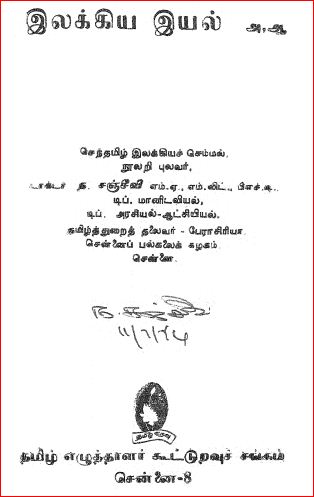 இலக்கிய இயல் அ, ஆ
செந்தமிழ் இலக்கியச் செம்மல்,
நூலறி புலவர்,
டாக்டர் ந. சஞ்சீவி எம்.ஏ., எம்.லிட்., பிஎச்.டி.,
டிப். மானிடவியல்,
டிப். அரசியல்-ஆட்சியியல்,
தமிழ்த்துறைத் தலைவர் - பேராசிரியர்
சென்னைப் பல்கலைக் கழகம்
சென்னை.
ந. சஞ்சீவி
11/7/74
தமிழ் எழுத்தாளர் கூட்டுறவுச் சங்கம்
சென்னை-8